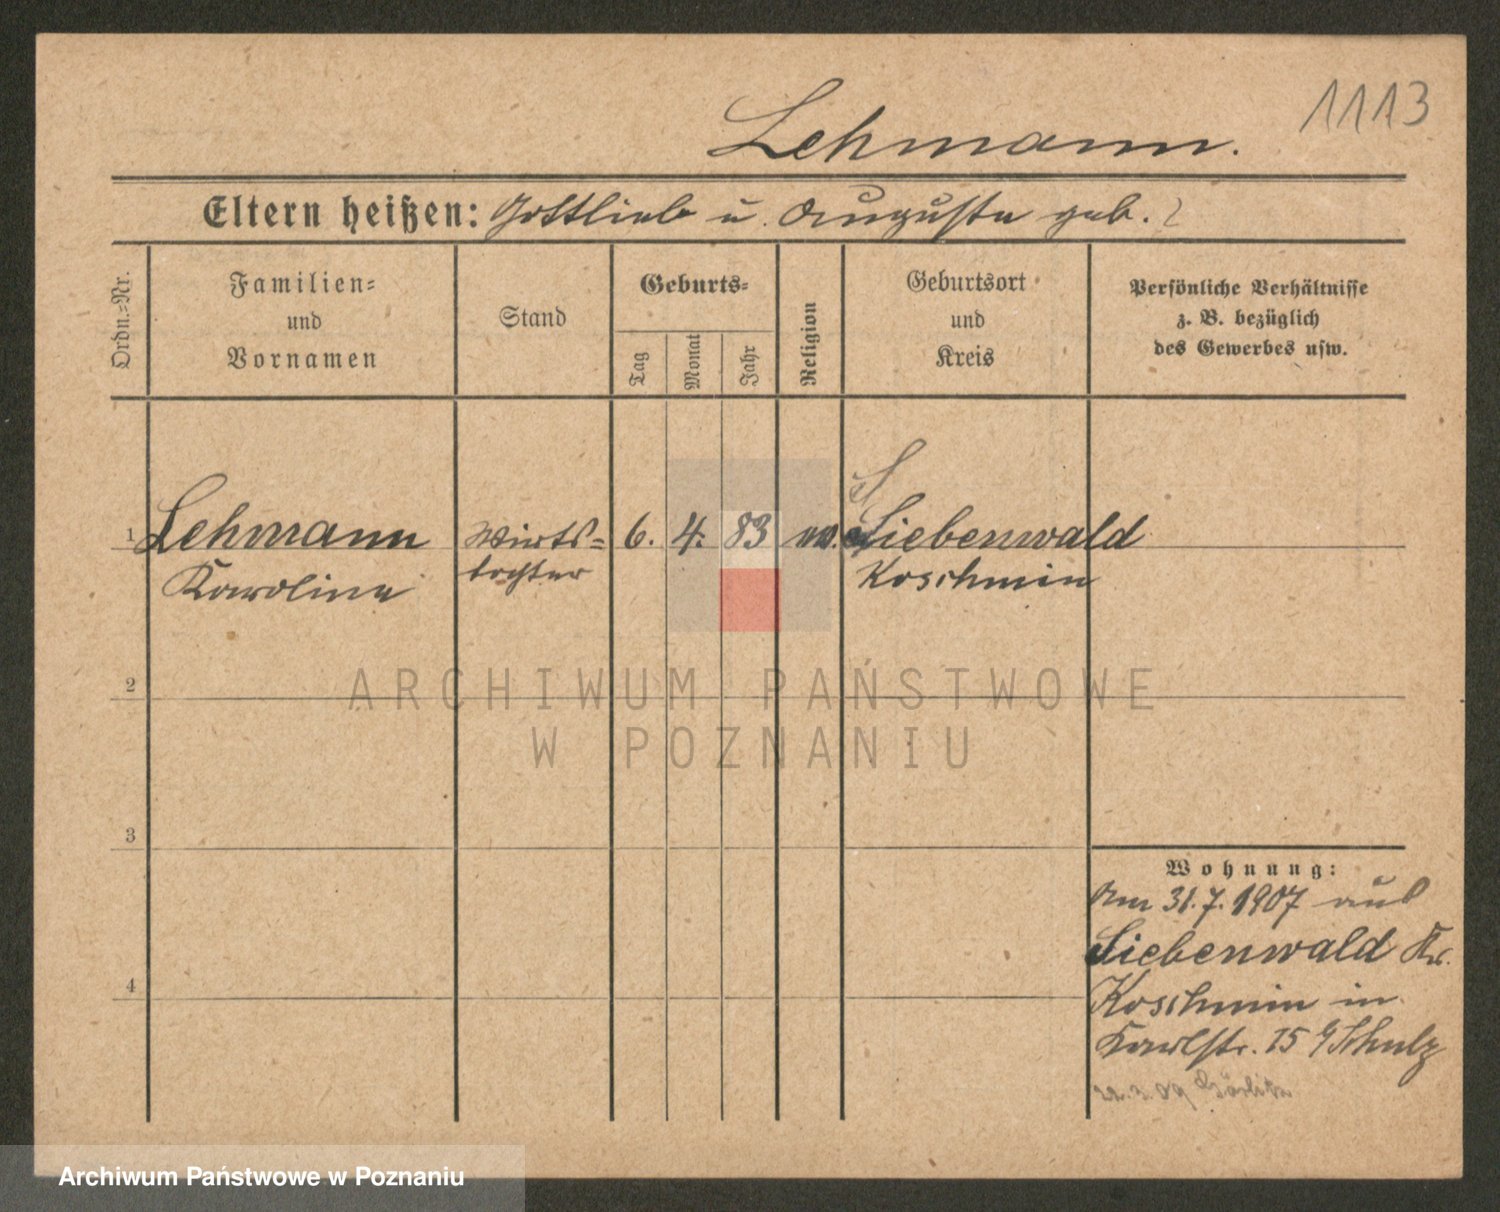 1113
Lehmann.
Eltern heißen: Gottlieb u. Auguste geb. ?
Ordn.-Nr.
Familien-
und
Vornamen
Stand
Geburts-
Tag
Monat
Jahr
Religion
Geburtsort
und
Kreis
Persönliche Verhältnisse
z. B. bezüglich
des Gewerbes usw.
1 Lehmann Wirts- 6. 4. 83 Liebenwald
Karoline tochter Koschmin
2
ARCHIWUM PAŃSTWOWE
W POZNANIU
3
Wohnung:
Am 31.7.1907 aus
Liebenwald Kr.
4
Koschmin in
Karlstr. 15 Schulz
22.3.09 Görlitz
Archiwum Państwowe w Poznaniu